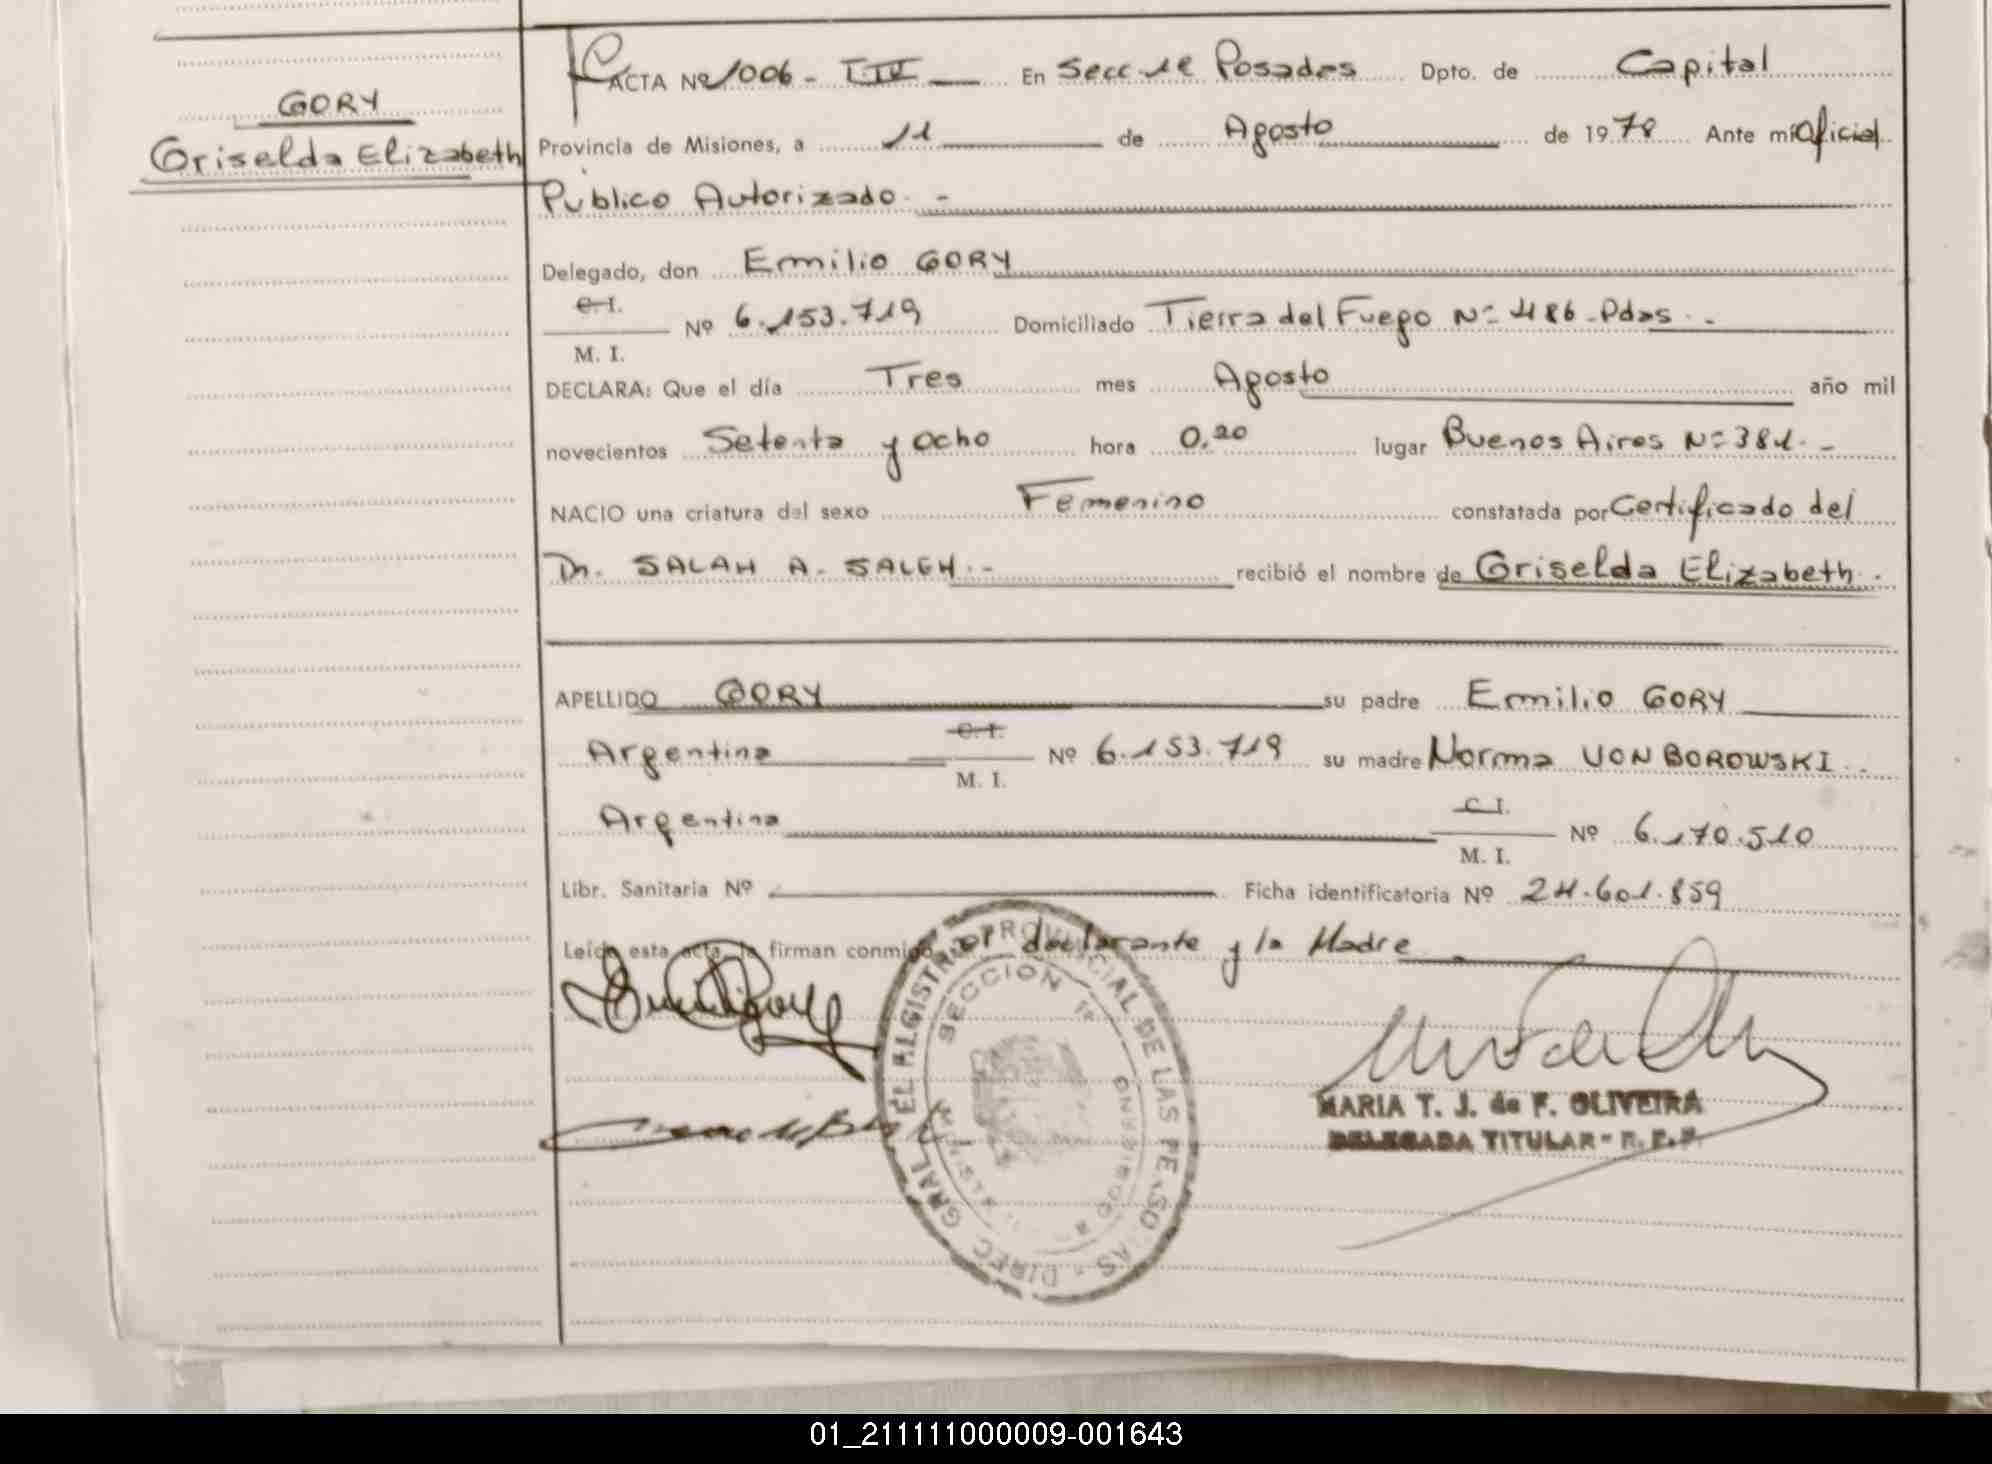 GORY
Griselda Elizabeth
ACTA Nº 1006 - T. IV En Secc 1ª Posadas Dpto. de Capital
Provincia de Misiones, a 11 de Agosto de 1978 Ante mi Oficial
Publico Autorizado. -
Delegado, don Emilio GORY
C. I.
Nº 6.153.719 Domiciliado Tierra del Fuego Nº 486 - Pdas. -
M. I.
DECLARA: Que el día Tres mes Agosto año mil
novecientos Setenta y ocho hora 0.20 lugar Buenos Aires Nº 381. -
NACIO una criatura del sexo Femenino constatada por Certificado del
Dr. SALAH A. SALEH. - recibió el nombre de Griselda Elizabeth.
APELLIDO GORY su padre Emilio GORY
C. I.
Argentina Nº 6.153.719 su madre Norma VON BOROWSKI.
M. I.
C. I.
Argentina Nº 6.170.510
M. I.
Libr. Sanitaria Nº Ficha identificatoria Nº 24.601.859
Leída esta acta, la firman conmigo el declarante y la Madre
DIREC. GRAL. DEL REGISTRO PROVINCIAL DE LAS PERSONAS
SECCION 1ª
MARIA T. J. de F. OLIVEIRA
DELEGADA TITULAR - R. P. P.
01_211111000009-001643